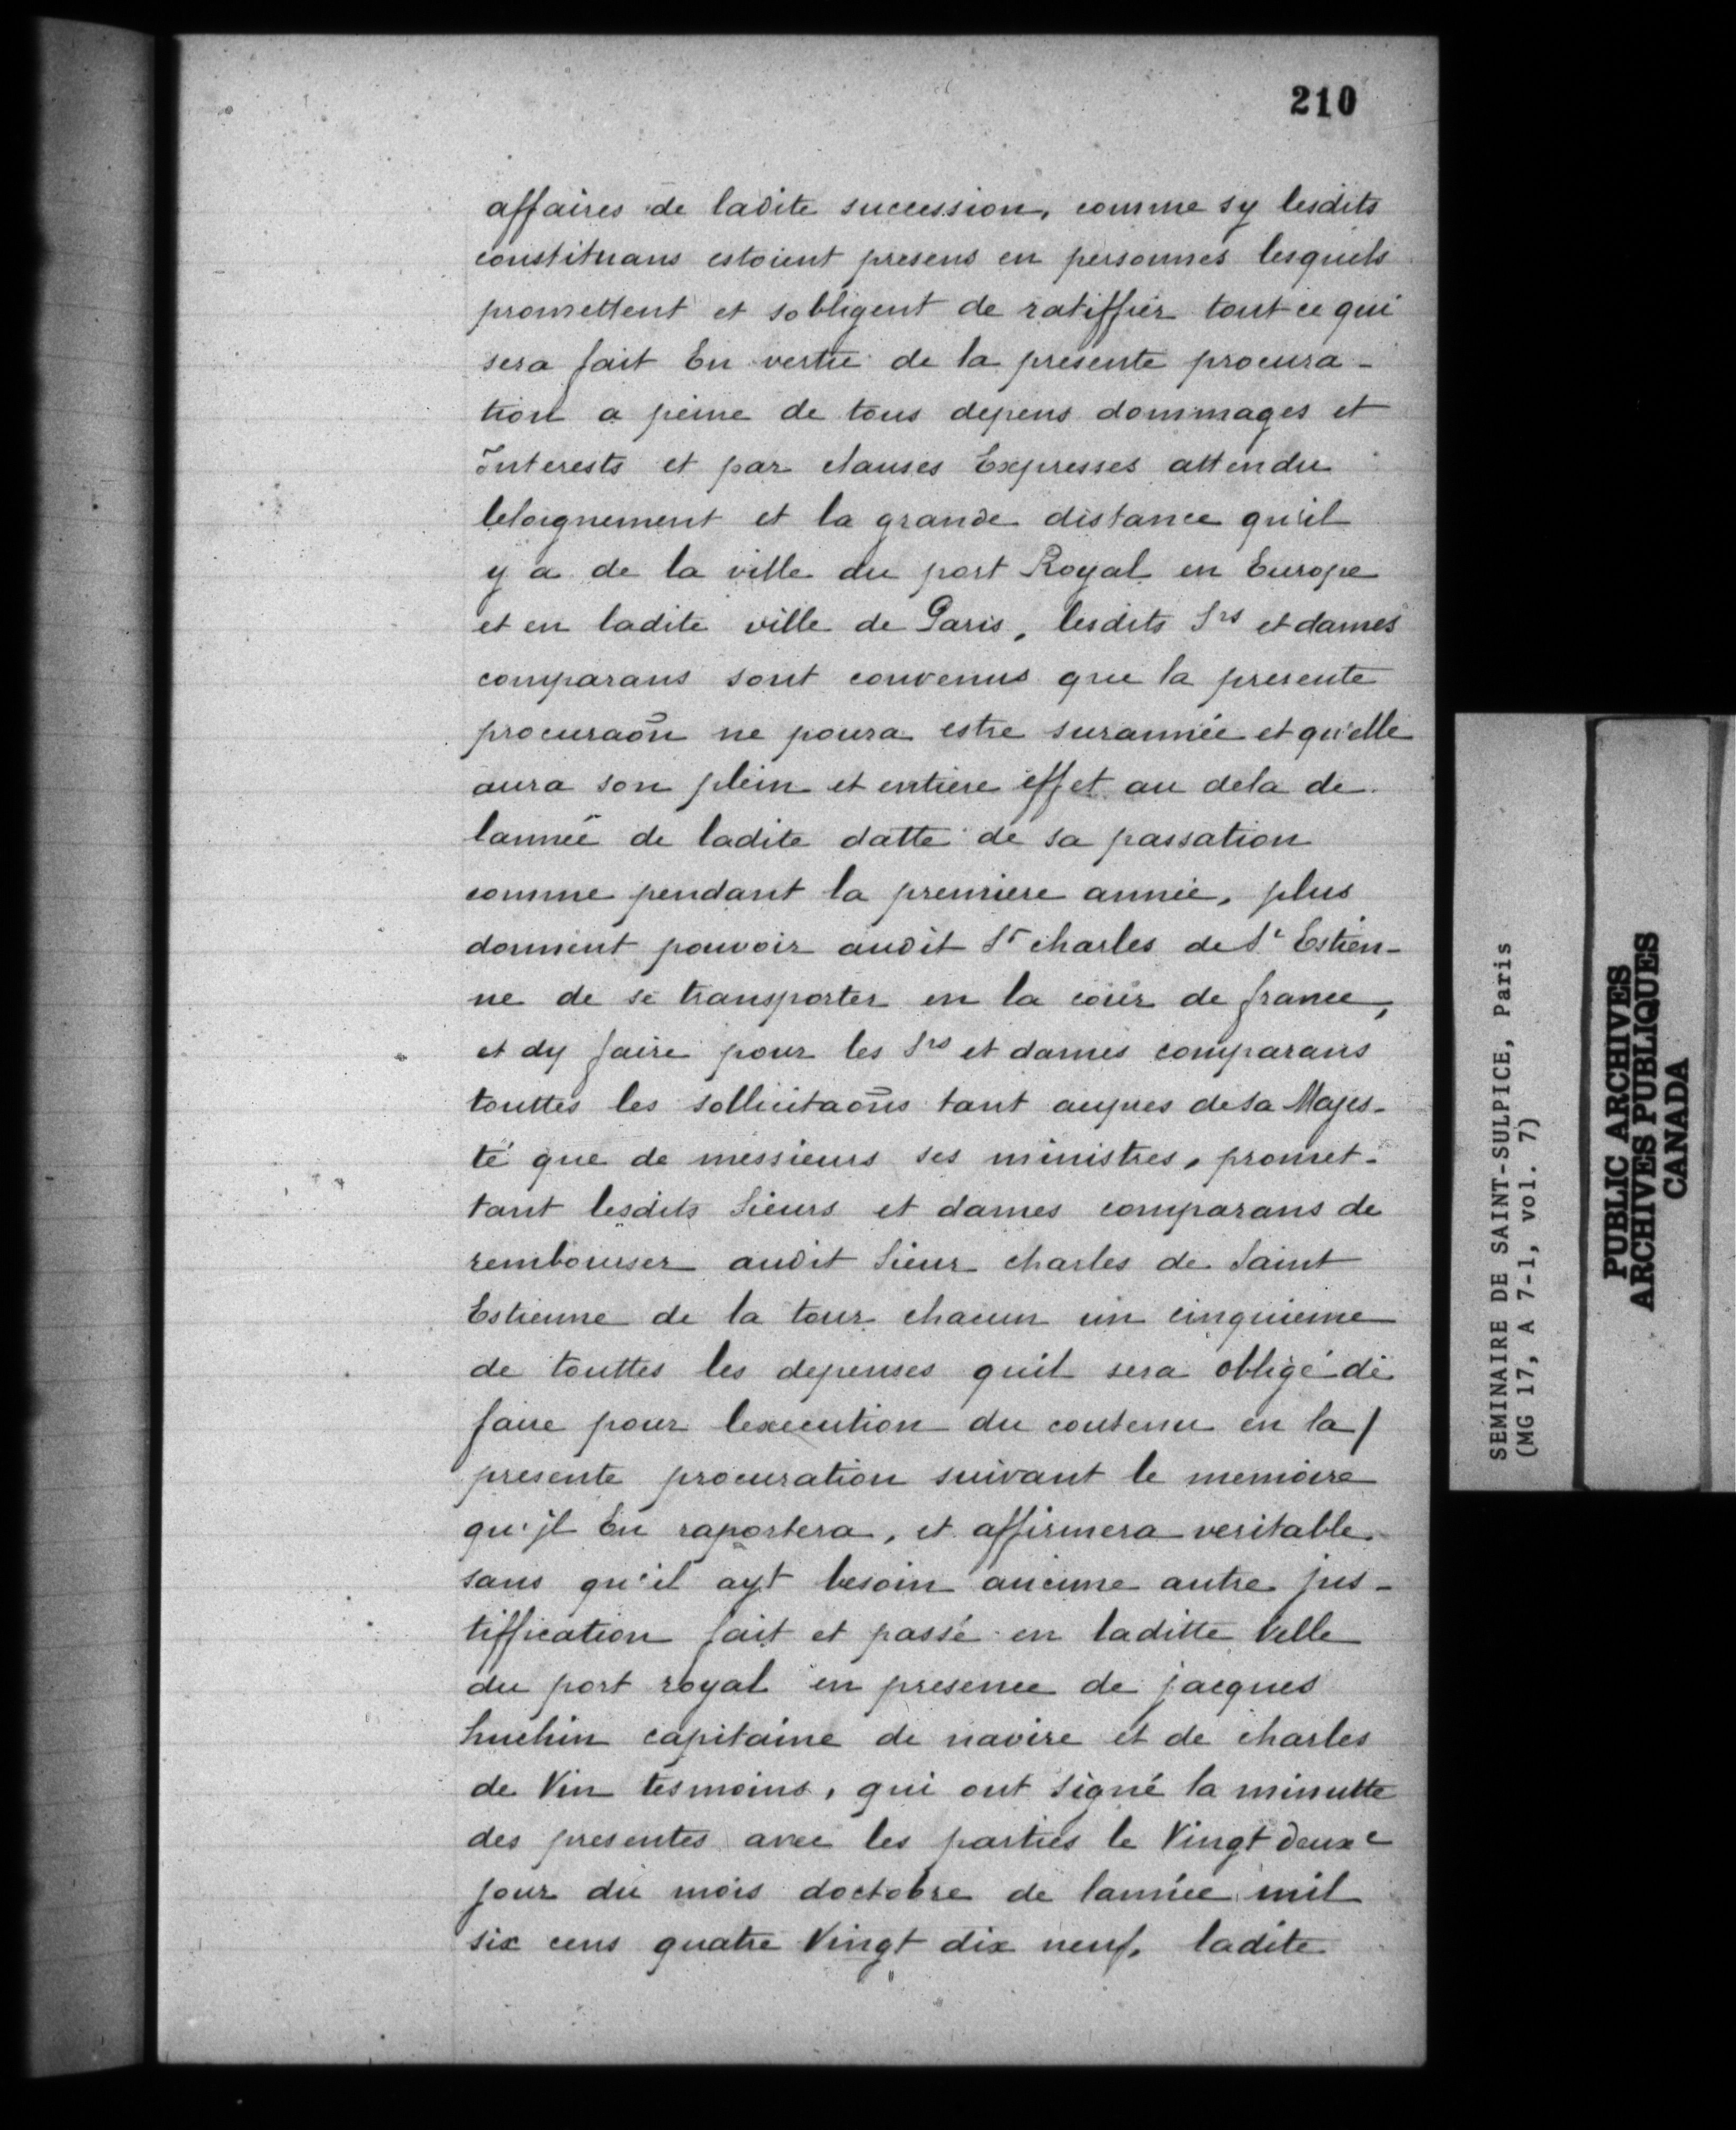 210
affaires de ladite succession, comme sy lesdits
constituans estoient presens en personnes lesquels
promettent et sobligent de ratiffier tout ce qui
sera fait En vertu de la presente procura-
tion a peine de tous depens dommages et
Interests et par clauses Expresses attendu
leloignement et la grande distance qu'il
y a de la ville du port Royal en Europe
et en ladite ville de Paris, lesdits Srs et dames
comparans sont convenus que la presente
procuraōn ne poura estre surannée et qu'elle
aura son plein et entiere effet au dela de
lannée de ladite datte de sa passation
comme pendant la premiere année, plus
donnent pouvoir audit Sr charles de St Estien-
ne de se transporter en la cour de france,
et dy faire pour les Srs et dames comparans
touttes les sollicitaōns tant aupres de sa Majes-
té que de messieurs ses ministres, promet-
tant lesdits Sieurs et dames comparans de
rembourser audit Sieur charles de Saint
Estienne de la tour chacun un cinquieme
de touttes les depenses quil sera obligé de
faire pour lexecution du contenu en la /
presente procuration suivant le memoire
qu'jl En raportera, et affirmera veritable.
sans qu'il ayt besoin aucune autre jus-
tiffication fait et passé en laditte Ville
du port royal en presence de jacques
huchin capitaine de navire et de charles
de Vin tesmoins, qui ont signé la minutte
des presentes avec les parties le Vingt deuxe
jour du mois doctobre de lannée mil
six cens quatre Vingt dix neuf, ladite
SEMINAIRE DE SAINT-SULPICE, Paris
(MG 17, A 7-1, vol. 7)
PUBLIC ARCHIVES
ARCHIVES PUBLIQUES
CANADA